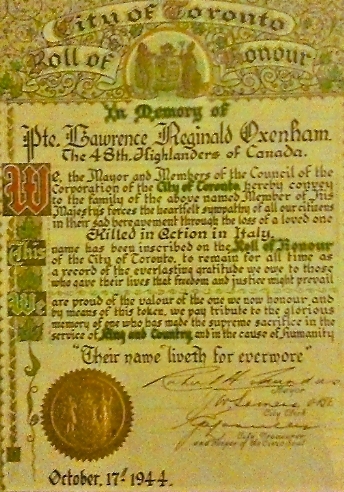 City of Toronto
Roll of Honour
In Memory of
Pte. Lawrence Reginald Oxenham.
The 48th. Highlanders of Canada.
We, the Mayor and Members of the Council of the
Corporation of the City of Toronto, hereby convey
to the family of the above named Member of His
Majesty's forces the heartfelt sympathy of all our citizens
in their sad bereavement through the loss of a loved one
Killed in Action in Italy.
This name has been inscribed on the Roll of Honour
of the City of Toronto, to remain for all time as
a record of the everlasting gratitude we owe to those
who gave their lives that freedom and justice might prevail
We are proud of the valour of the one we now honour and
by means of this token, we pay tribute to the glorious
memory of one who has made the supreme sacrifice in the
service of King and Country and in the cause of humanity
"Their name liveth for evermore"
Mayor
City Clerk
City Treasurer
and Keeper of the Civic Seal
October, 17th 1944.